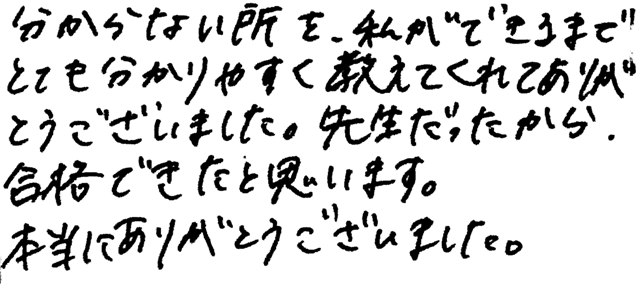 分からない所を、私ができるまで
とても分かりやすく教えてくれてありが
とうございました。先生だったから、
合格できたと思います。
本当にありがとうございました。